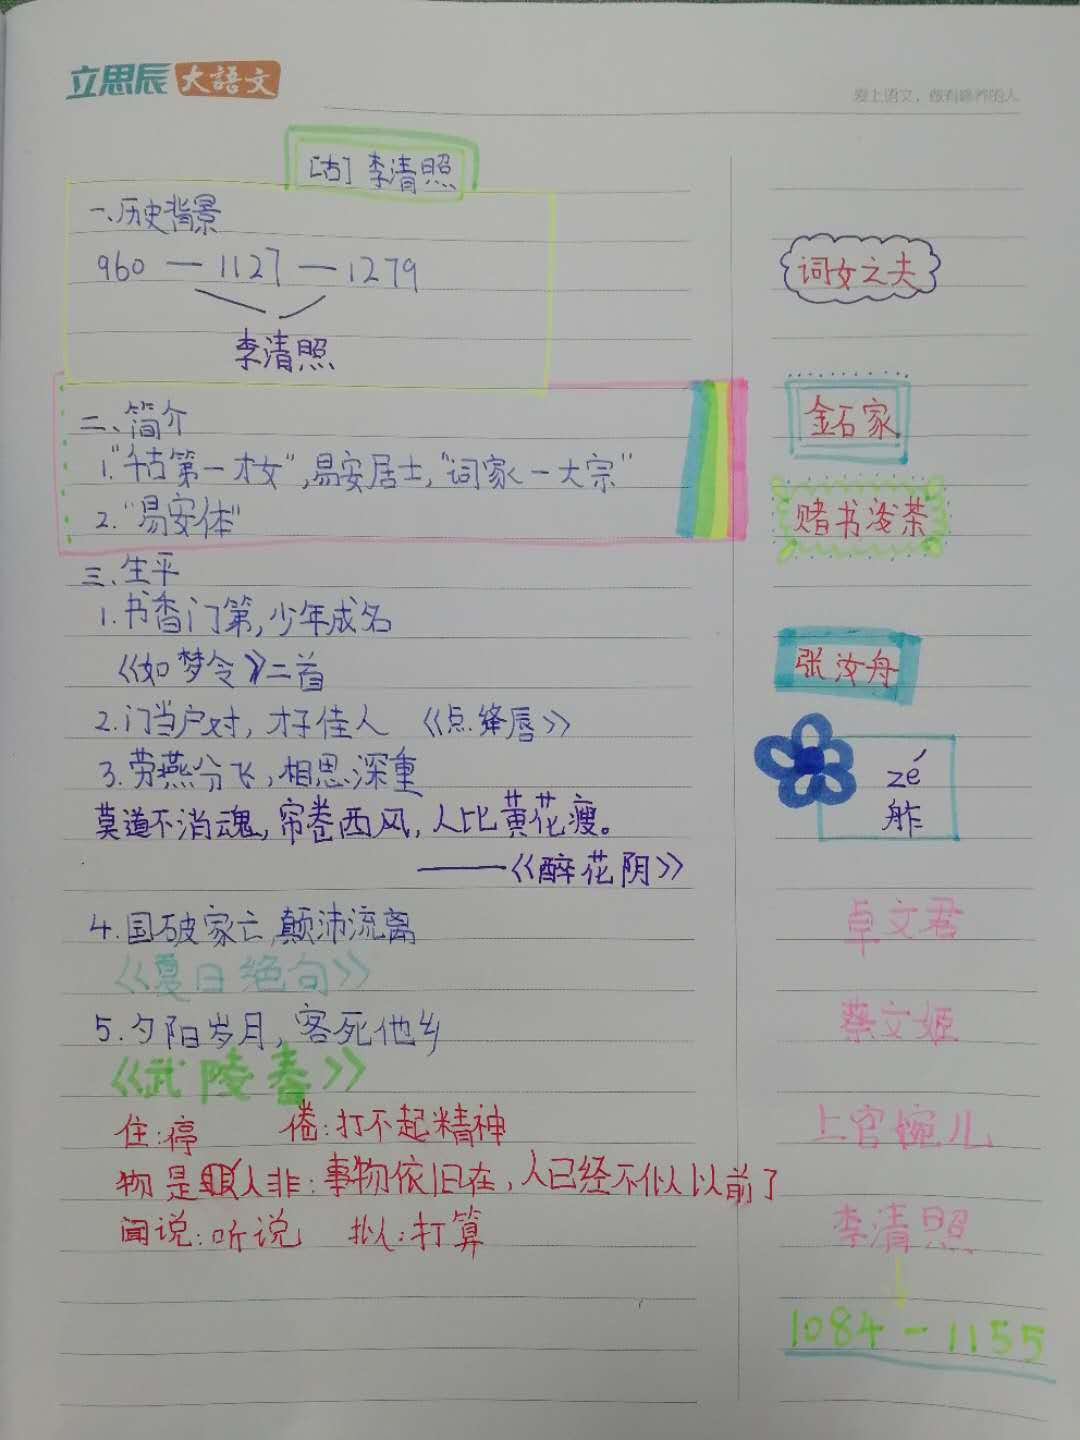 立思辰大語文
爱上语文，做有修养的人
[古] 李清照
一、历史背景
960 — 1127 — 1279
李清照
二、简介
1."千古第一才女",易安居士,"词家一大宗"
2."易安体"
三、生平
1.书香门第,少年成名
《如梦令》二首
2.门当户对，才子佳人 《点绛唇》
3.劳燕分飞，相思深重
莫道不消魂，帘卷西风，人比黄花瘦。
——《醉花阴》
4.国破家亡,颠沛流离
《夏日绝句》
5.夕阳岁月，客死他乡
《武陵春》
住:停 倦:打不起精神
物是人非:事物依旧在，人已经不似以前了
闻说:听说 拟:打算
词女之夫
金石家
赌书泼茶
张汝舟
zé
舴
卓文君
蔡文姬
上官婉儿
李清照
1084-1155